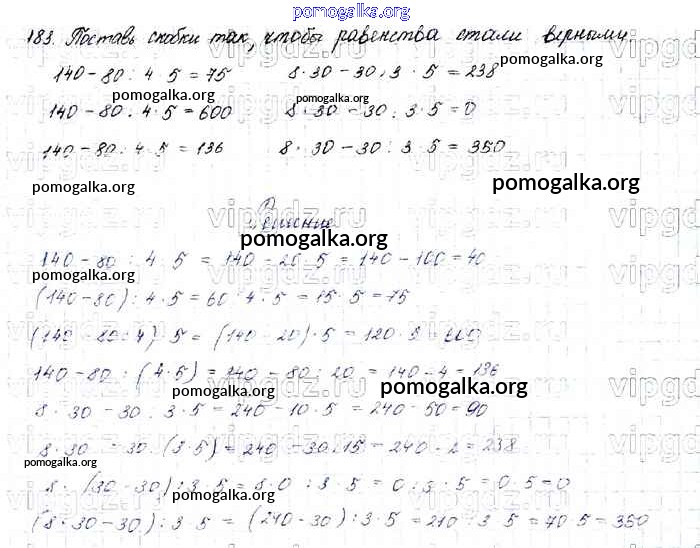 pomogalka.org
183. Поставь скобки так, чтобы равенства стали верными.
140 - 80 : 4 · 5 = 75 8 · 30 - 30 : 3 · 5 = 238
pomogalka.org pomogalka.org
140 - 80 : 4 · 5 = 600 8 · 30 - 30 : 3 · 5 = 0
140 - 80 : 4 · 5 = 136 8 · 30 - 30 : 3 · 5 = 350
pomogalka.org pomogalka.org
vipgdz.ru
Решение
pomogalka.org
140 - 80 : 4 · 5 = 140 - 20 · 5 = 140 - 100 = 40
pomogalka.org
(140 - 80) : 4 · 5 = 60 : 4 · 5 = 15 · 5 = 75
(140 - 80 : 4) · 5 = (140 - 20) · 5 = 120 · 5 = 600
pomogalka.org
140 - 80 : (4 · 5) = 140 - 80 : 20 = 140 - 4 = 136
pomogalka.org pomogalka.org
8 · 30 - 30 : 3 · 5 = 240 - 10 · 5 = 240 - 50 = 90
8 · 30 - 30 : (3 · 5) = 240 - 30 : 15 = 240 - 2 = 238
pomogalka.org
8 · (30 - 30) : 3 · 5 = 8 · 0 : 3 · 5 = 0 : 3 · 5 = 0 · 5 = 0
pomogalka.org
(8 · 30 - 30) : 3 · 5 = (240 - 30) : 3 · 5 = 210 : 3 · 5 = 70 · 5 = 350